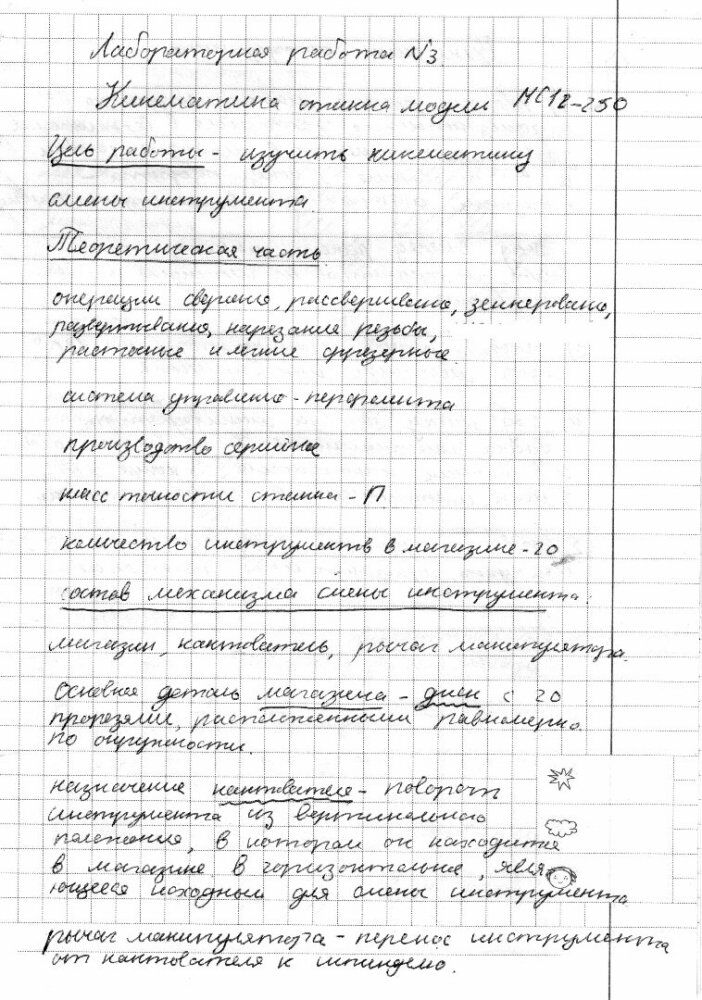 Лабораторная работа N3
Кинематика станка модели МС12-250
Цель работы - изучить кинематику
смены инструмента
Теоретическая часть
операции сверления, рассверливания, зенкерования,
развертывания, нарезание резьбы,
расточные и легкие фрезерные
система управления - перфолента
производство серийное
класс точности станка - П
количество инструментов в магазине - 20
состав механизма смены инструмента:
магазин, кантователь, рычаг манипулятора.
Основная деталь магазина - диск с 20
прорезями, расположенными равномерно
по окружности.
назначение кантователя - поворот
инструмента из вертикального
положения, в котором он находится
в магазине в горизонтальное, явля-
ющееся исходным для смены инструмента
рычаг манипулятора - перенос инструмента
от кантователя к шпинделю.